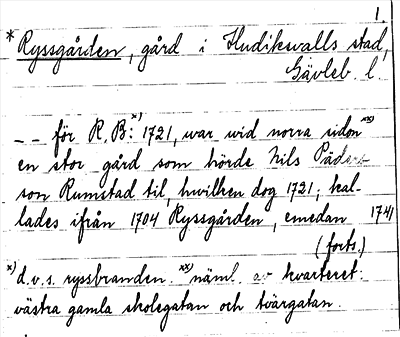 1.
* Ryssgården, gård i Hudiksvalls stad,
Gävleb. l.
_ _ för R. B:x) 1721, war wid norra sidonxx)
en stor gård som hörde Nils Päders-
son Rumstad til, hwilken dog 1721; kal-
lades ifrån 1704 Ryssgården, emedan 1741
(forts.)
x) d.v.s. ryssbranden. xx) näml. av kvarteret:
västra gamla skolegatan och tvärgatan.